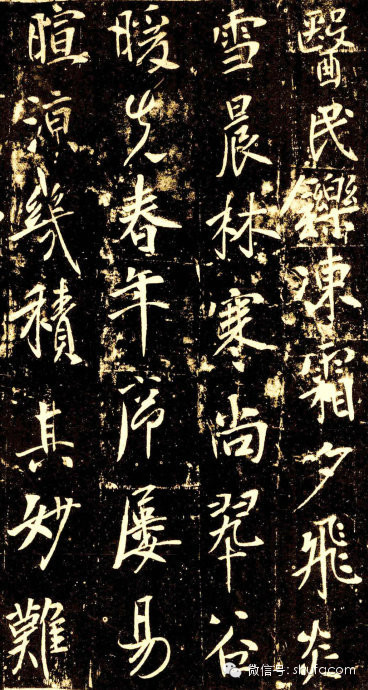 醫民鑠凍霜夕飛炎
雪晨林寒尚翠谷
暖先春年屢易
暄涼幾積其妙難
微信号: shufacom